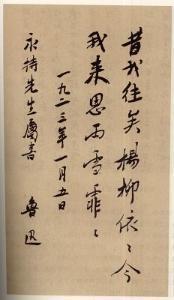 昔我往矣楊柳依〻今
我来思雨雪霏〻
一九二三年一月五日
永持先生屬書
魯迅